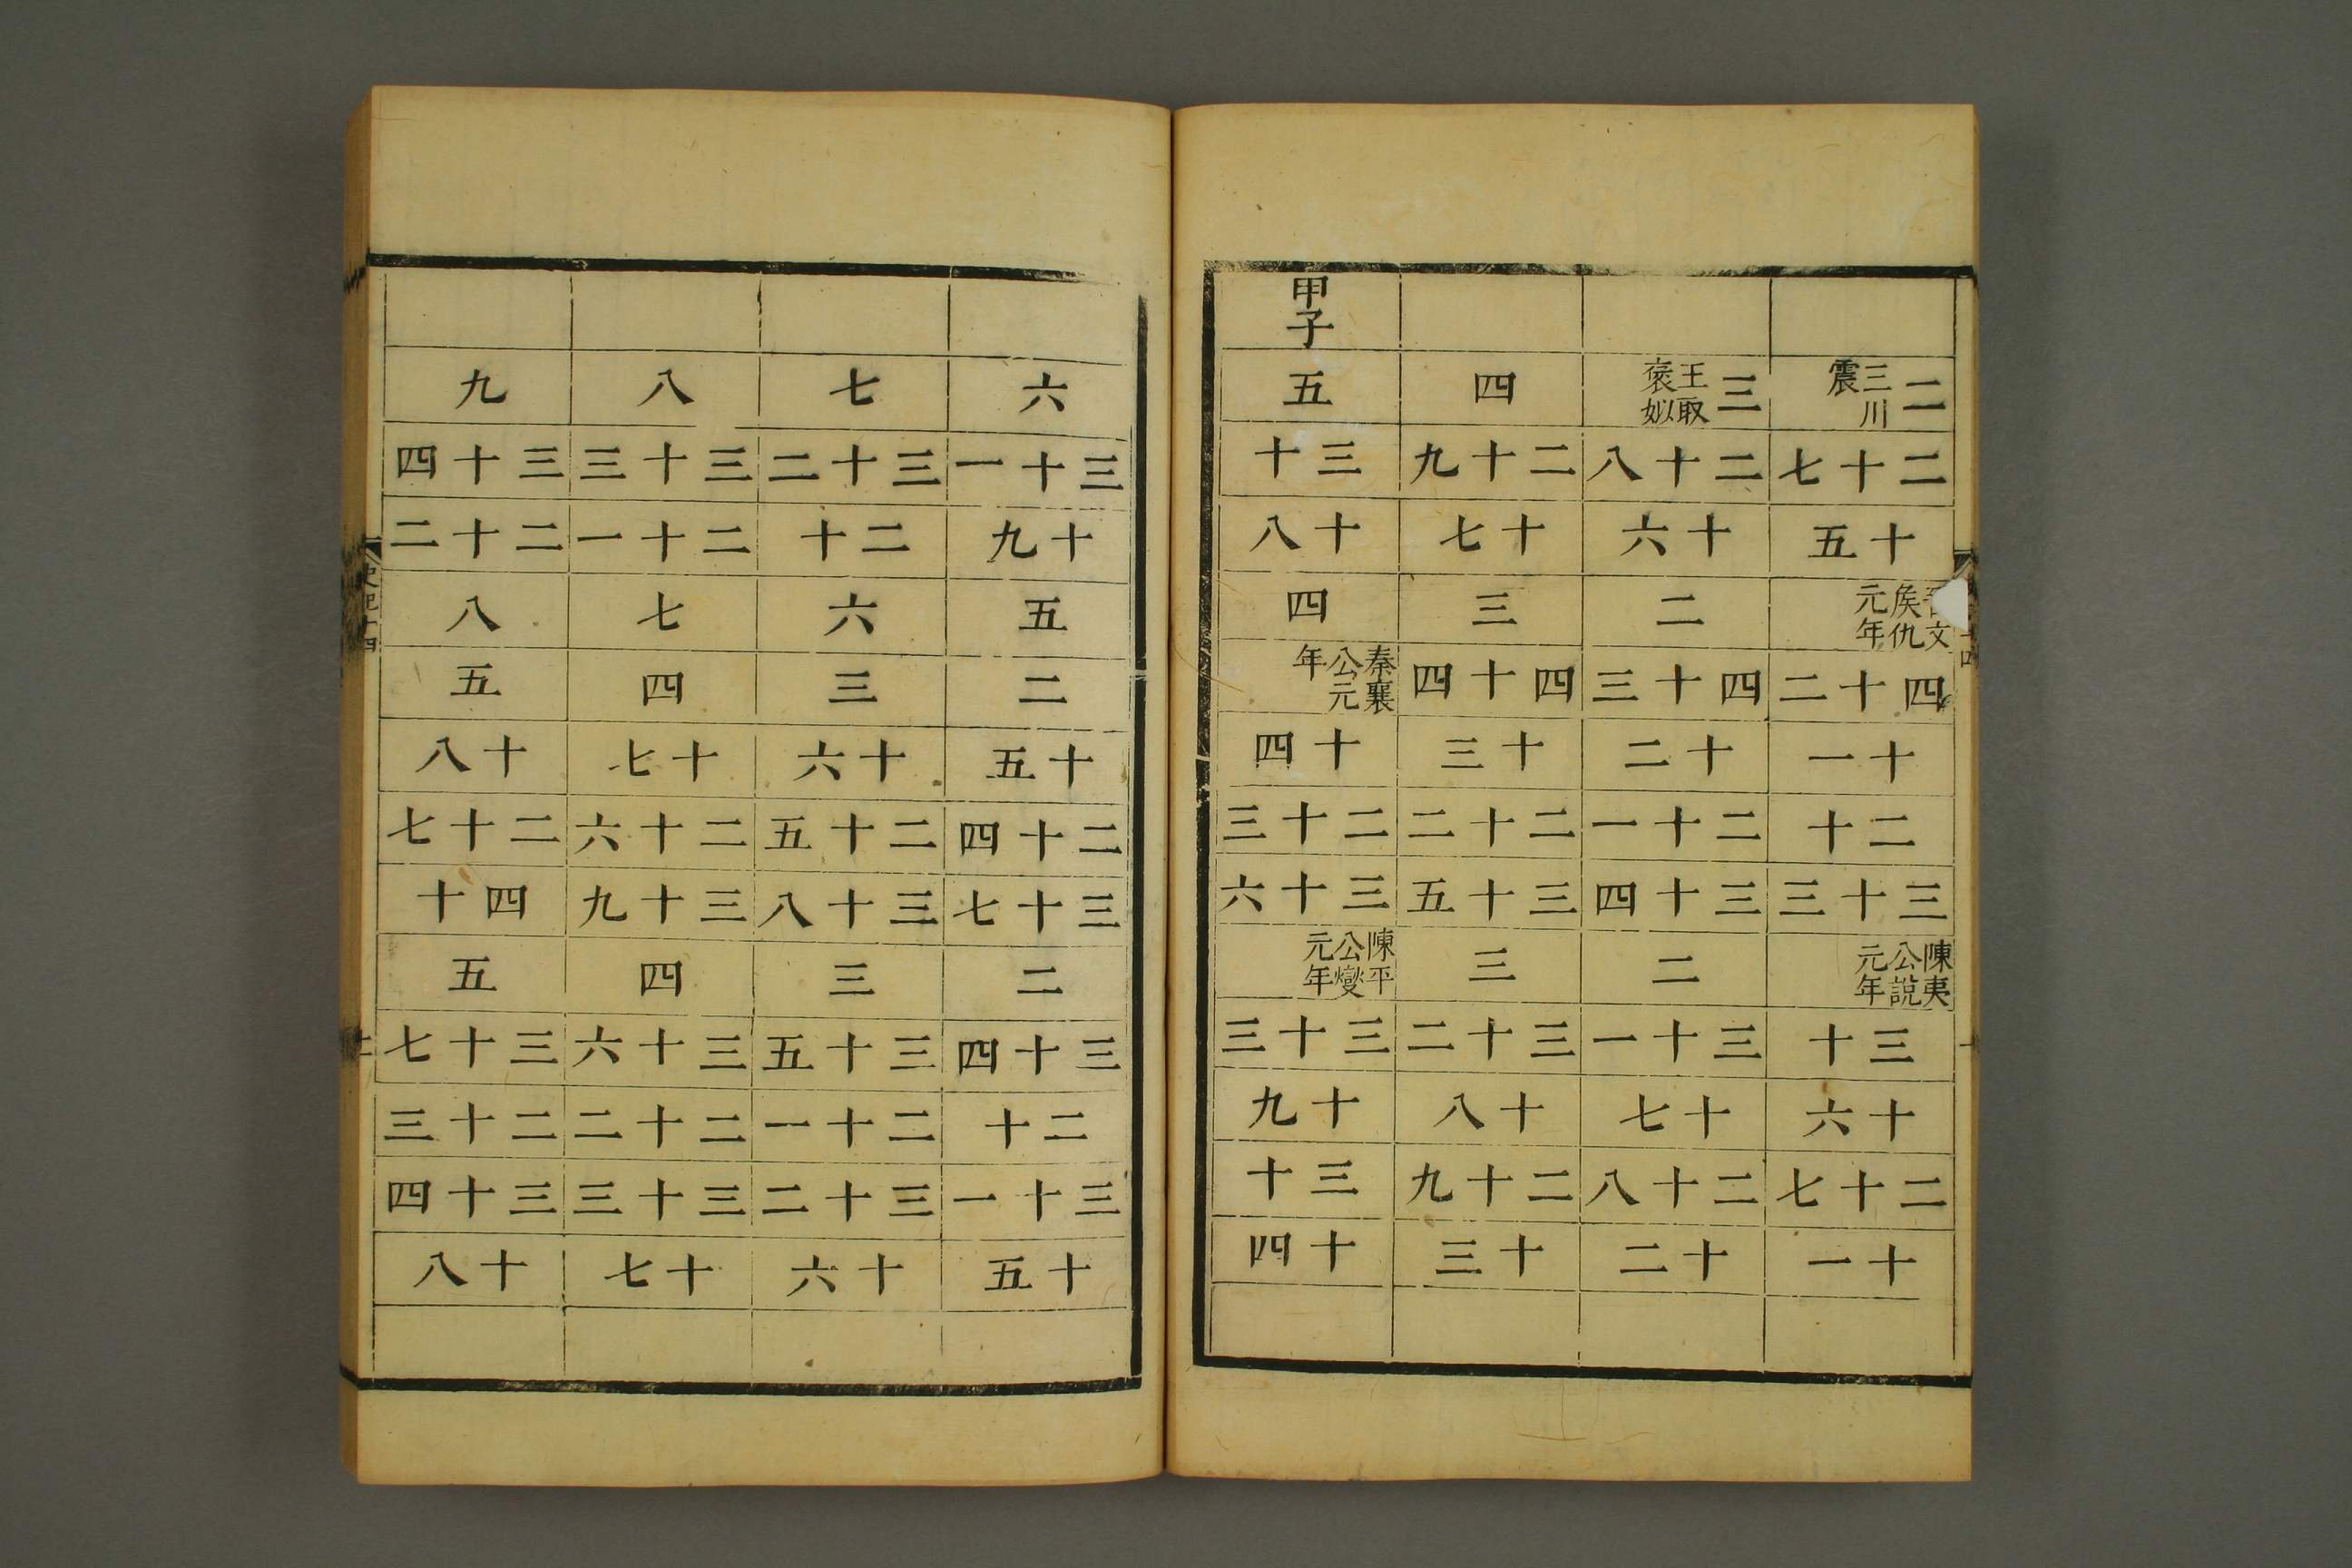 二三川震
二十七
十五
晉文矦仇元年
四十二
十一
二十
三十三
陳夷公說元年
三十
十六
二十七
十一
三王取褒姒
二十八
十六
二
四十三
十二
二十一
三十四
二
三十一
十七
二十八
十二
四
二十九
十七
三
四十四
十三
二十二
三十五
三
三十二
十八
二十九
十三
甲子
五
三十
十八
四
秦襄公元年
十四
二十三
三十六
陳平公燮元年
三十三
十九
三十
十四
六
三十一
十九
五
二
十五
二十四
三十七
二
三十四
二十
三十一
十五
七
三十二
二十
六
三
十六
二十五
三十八
三
三十五
二十一
三十二
十六
八
三十三
二十一
七
四
十七
二十六
三十九
四
三十六
二十二
三十三
十七
九
三十四
二十二
八
五
十八
二十七
四十
五
三十七
二十三
三十四
十八
史記十四